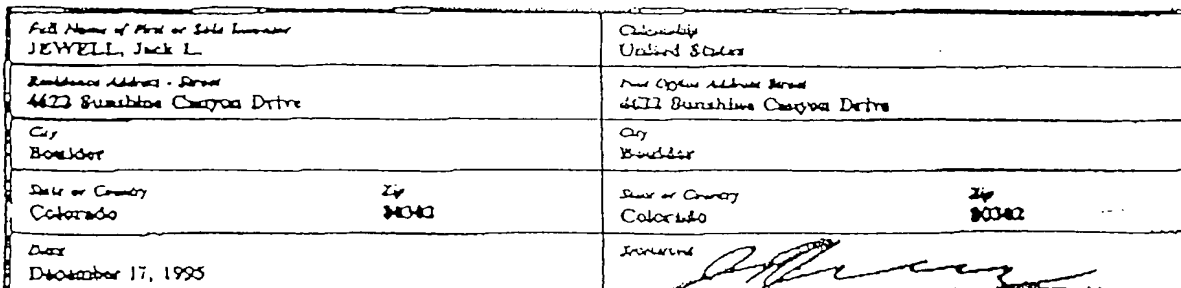 Full Name of First or Sole Inventor
JEWELL, Jack L.
Citizenship
United States
Residence Address - Street
Sunshine Canyon Drive
Post Office Address Street
Sunshine Canyon Drive
City
Boulder
City
Boulder
State or Country Zip
Colorado
State or Country Zip
Colorado 80302
Date
December 17, 1995
Signature